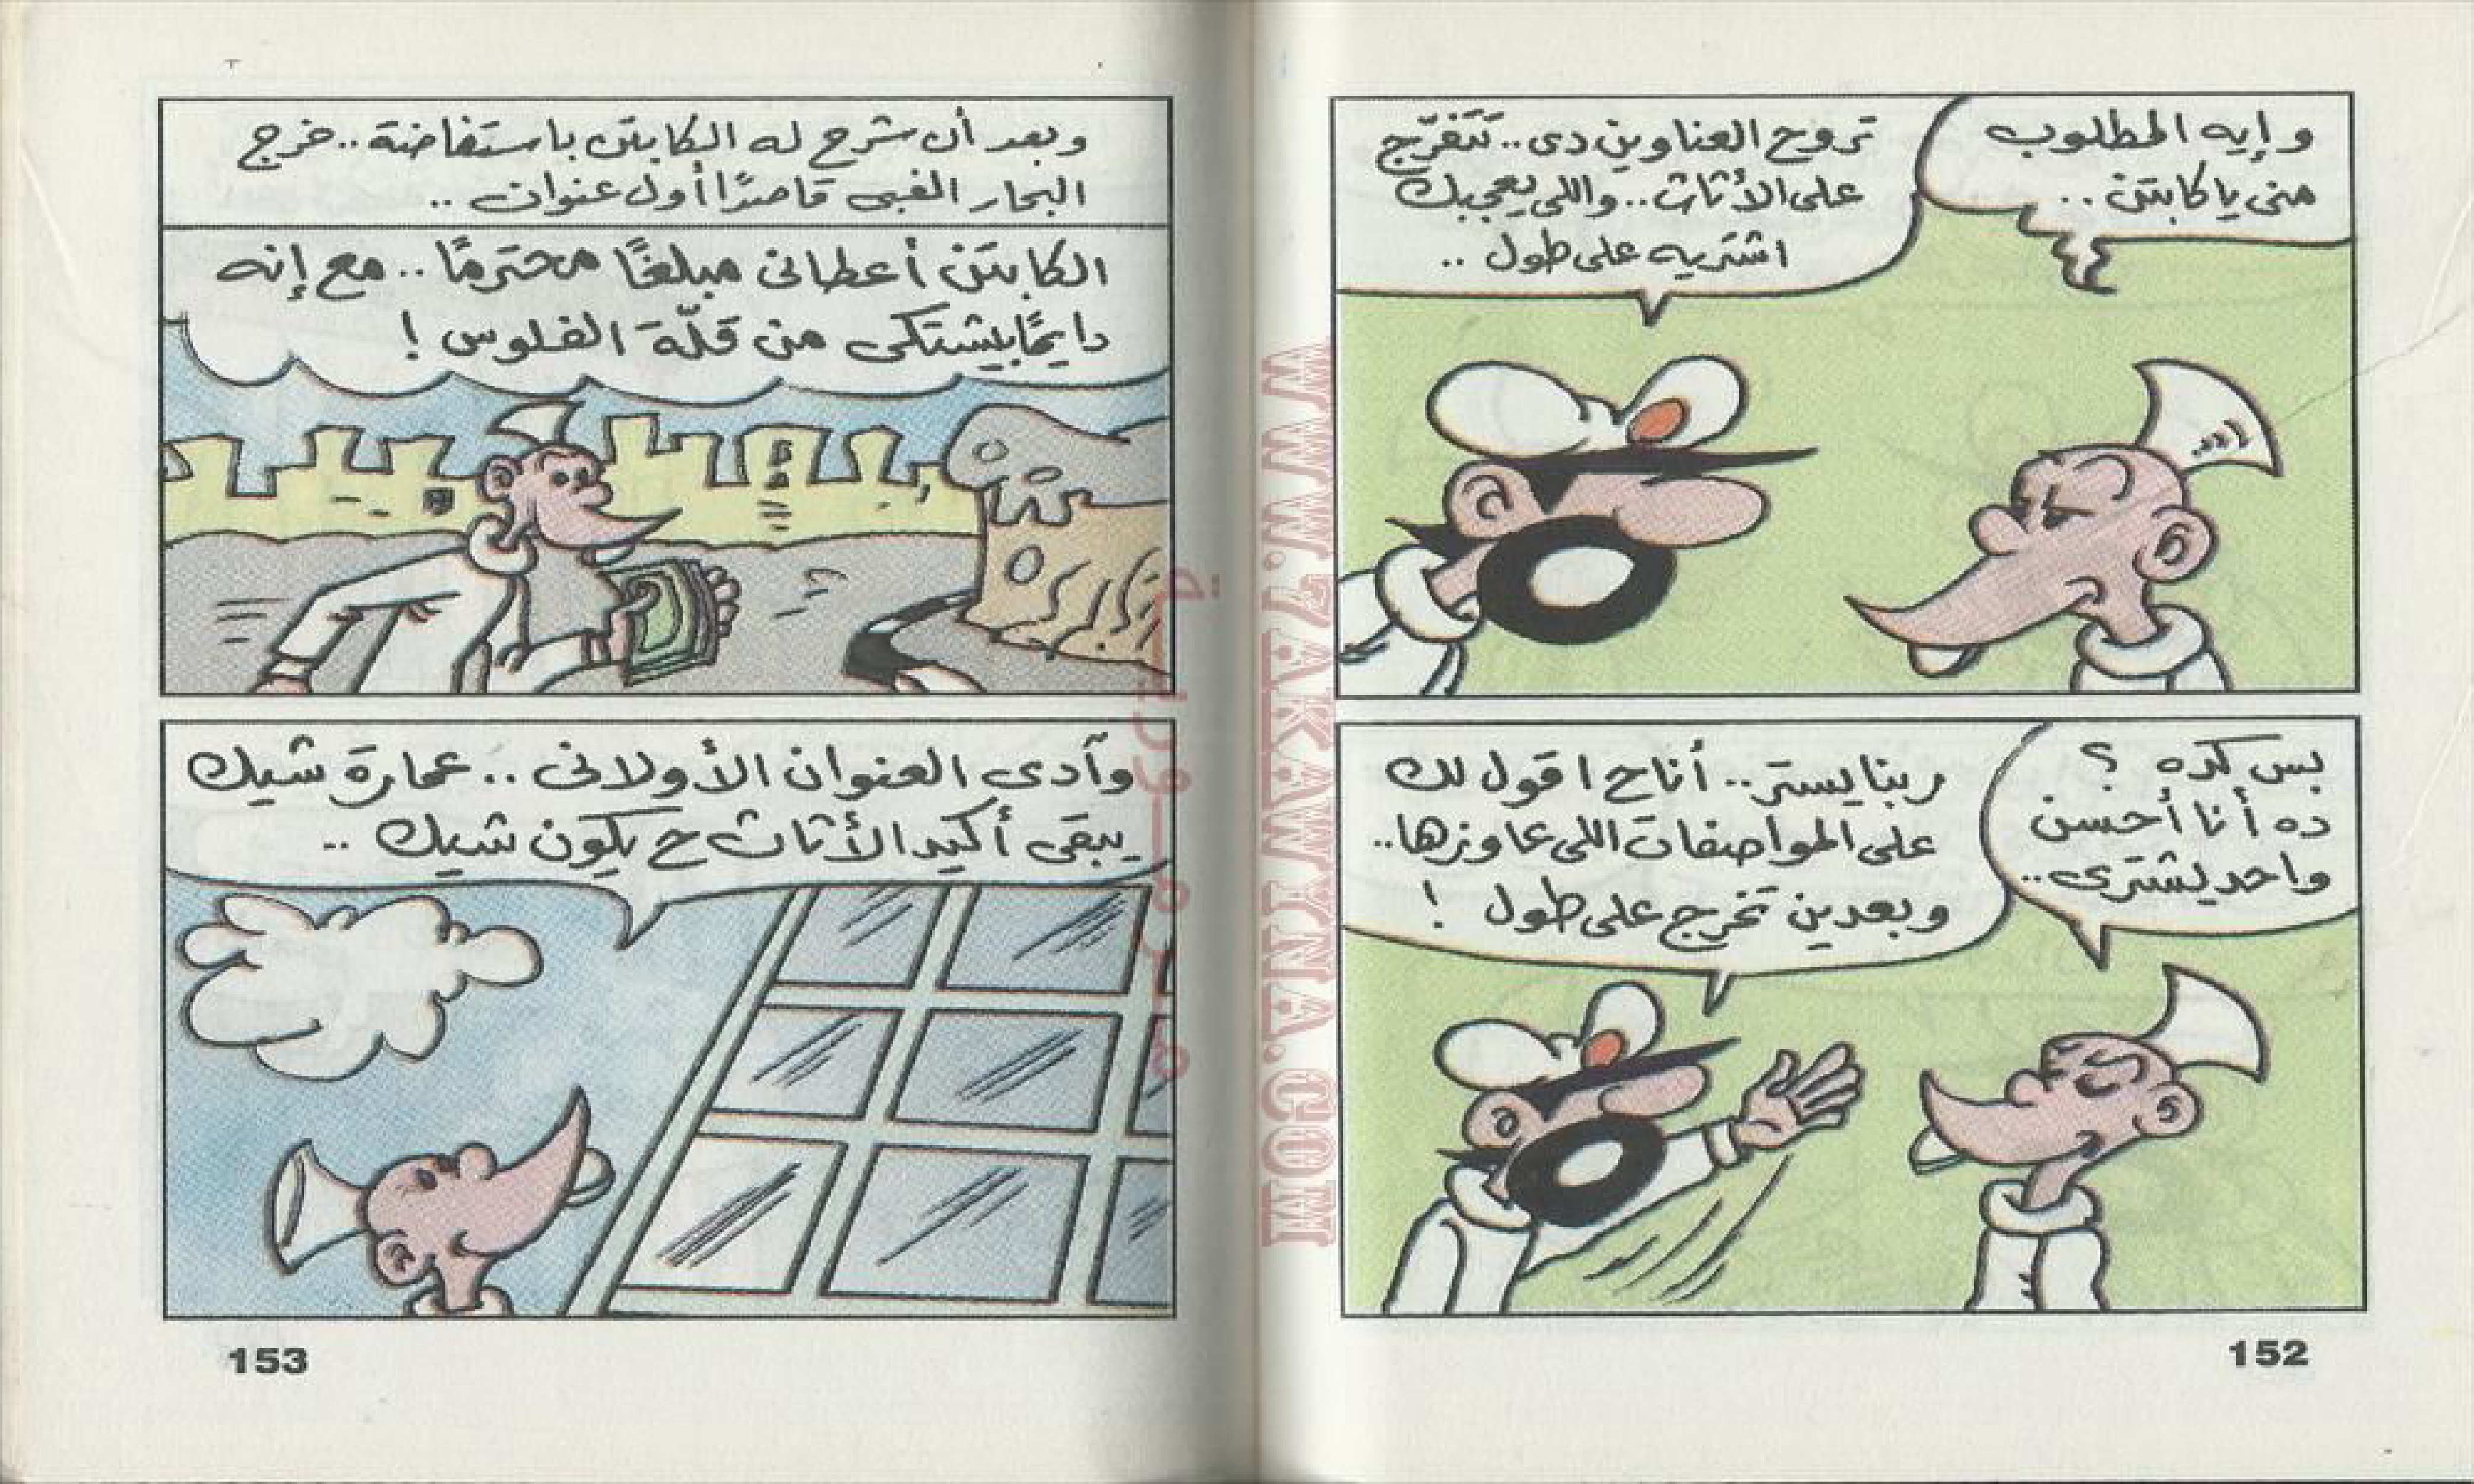 وإيه المطلوب
منى يا كابتن ..
تروح العناوين دى .. تتفرّج
على الأثاث .. واللى يعجبك
اشتريه على طول ..
بس كده ؟
ده أنا أحسن
واحد يشترى ..
ربنا يستر .. أنا ح اقول لك
على المواصفات اللى عاوزها ..
وبعدين تخرج على طول !
152
وبعد أن شرح له الكابتن باستفاضة .. خرج
البحار الغبى قاصدًا أول عنوان ..
الكابتن أعطانى مبلغًا محترمًا .. مع إنه
دايمًا بيشتكى من قلّة الفلوس !
وآدى العنوان الأولانى .. عمارة شيك
يبقى أكيد الأثاث ح يكون شيك ..
153
WWW.7AKAWINA.COM